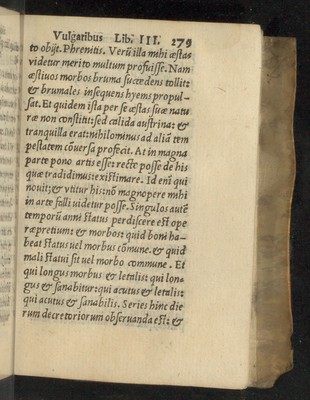 Vulgaribus Lib. III. 279
to obijt. Phrenitis. Verũ illa mihi æstas
videtur merito multum profuisse. Nam
æstiuos morbos bruma succedens tollit:
& brumales insequens hyems propul-
sat. Et quidem ista per se æstas suæ natu
ræ non constitit: sed calida austrina: &
tranquilla erat: nihilominus ad aliã tem
pestatem cõuersa profecit. At in magna
parte pono artis esse: recte posse de his
quæ tradidimus: existimare. Id enĩ qui
nouit: & vtitur his: nõ magnopere mihi
in arte falli videtur posse. Singulos autẽ
temporũ anni status perdiscere est ope
ræpretium: & morbos: quid boni ha-
beat status vel morbus cõmune. & quid
mali status sit vel morbo commune. Et
qui longus morbus & letalis: qui lon-
gus & sanabitur: qui acutus & letalis:
qui acutus & sanabilis. Series hinc die
rum decretoriorum obseruanda est: &